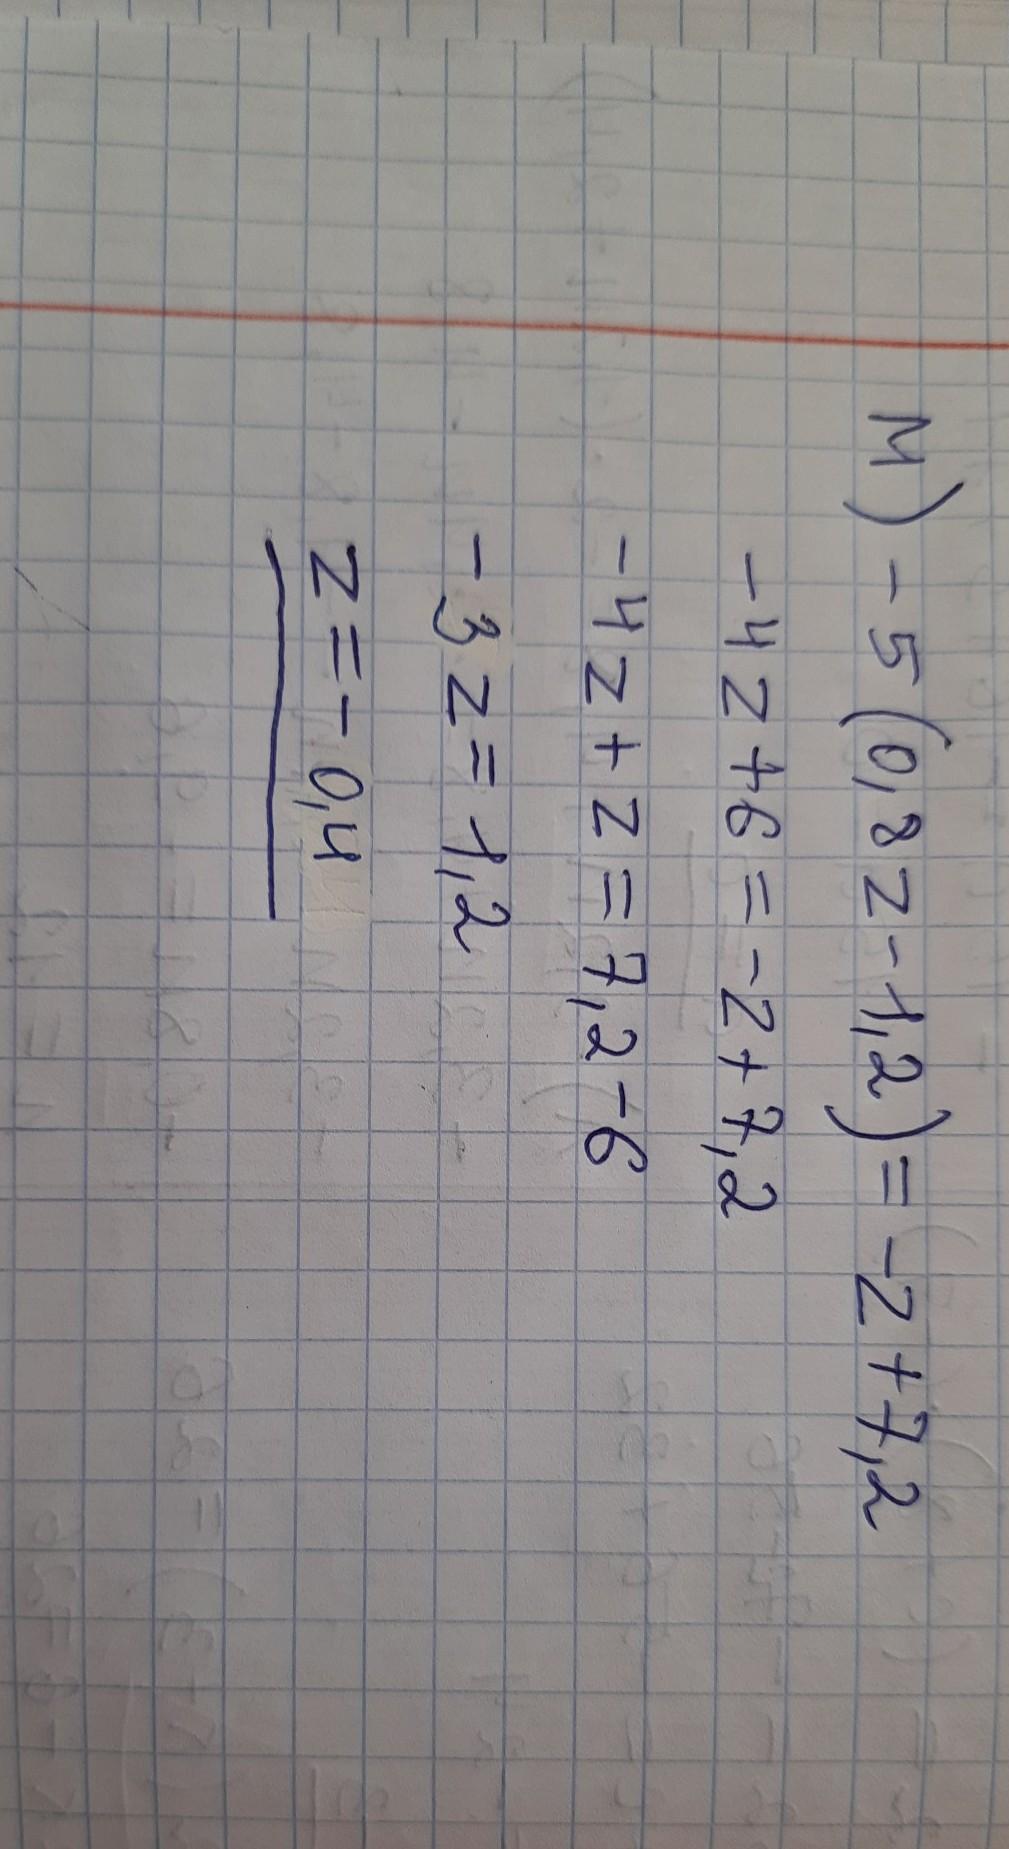 м) -5(0,8z-1,2)= -z+7,2
-4z+6=-z+7,2
-4z+z=7,2-6
-3z=1,2
z=-0,4